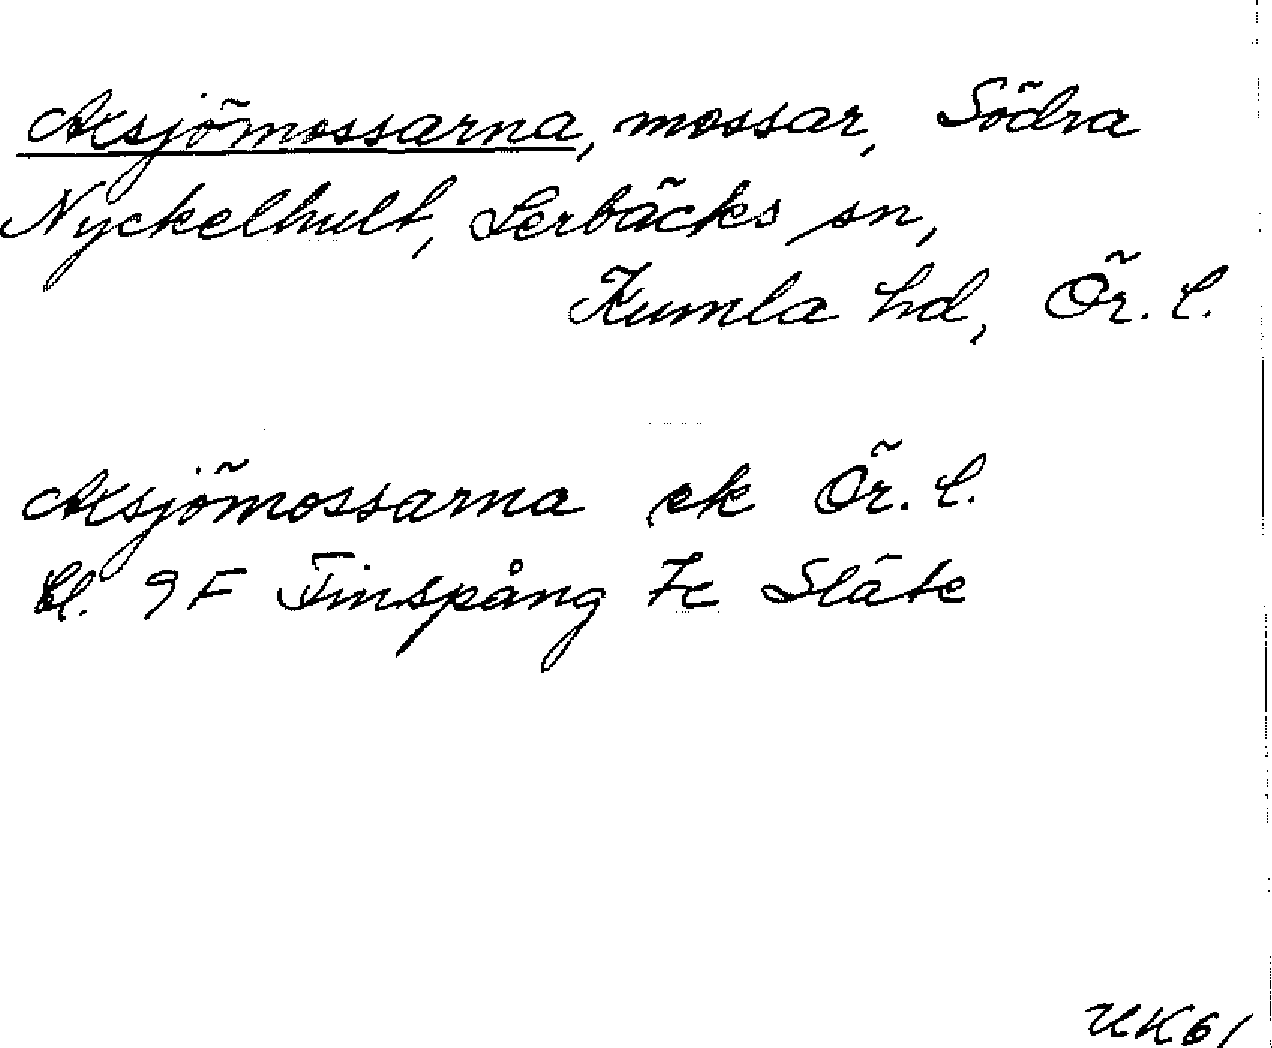 Aksjömossarna, mossar, Södra
Nyckelhult, Lerbäcks sn,
Kumla hd, Ör. l.
Aksjömossarna ek Ör. l.
bl. 9 F Finspång 7c Släte
UK61